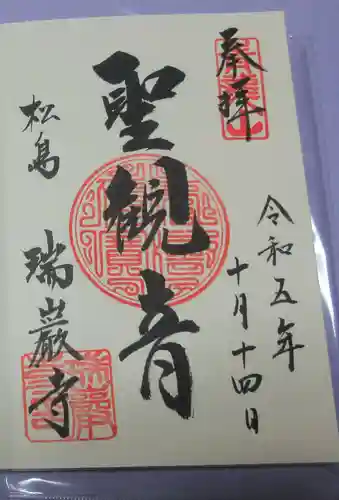 奉拝
令和五年
十月十四日
聖観音
松島
瑞巌寺